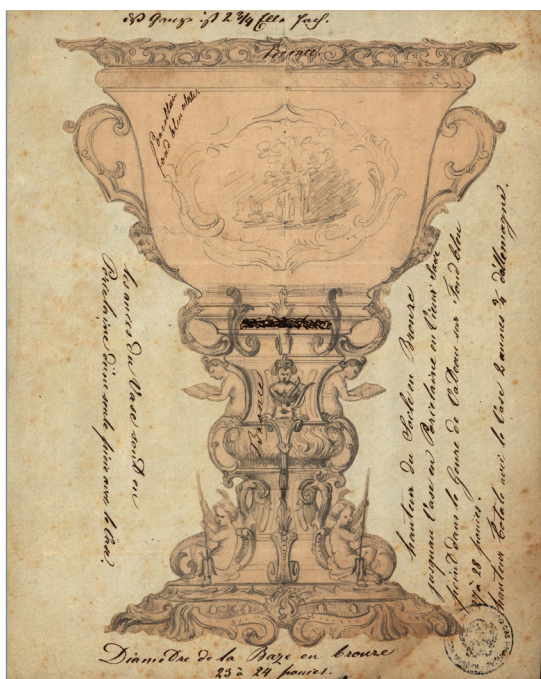 das Ganze ist 2 3/4 Elle hoch.
Bronce
Porcellain
fond bleu
Les anses du Vase sont en
Porcelaine d'une seule pièce avec le Vase.
Bronce
hauteur du Socle en Bronze
jusqu'au Vase en Porcelaine
peint dans le Genre de Vateau sur fond bleu
27 à 28 pouces.
hauteur totale avec le Vase 2 aunes 3/4 d'allemagne.
Diamètre de la Baze en bronze
23 à 24 pouces.